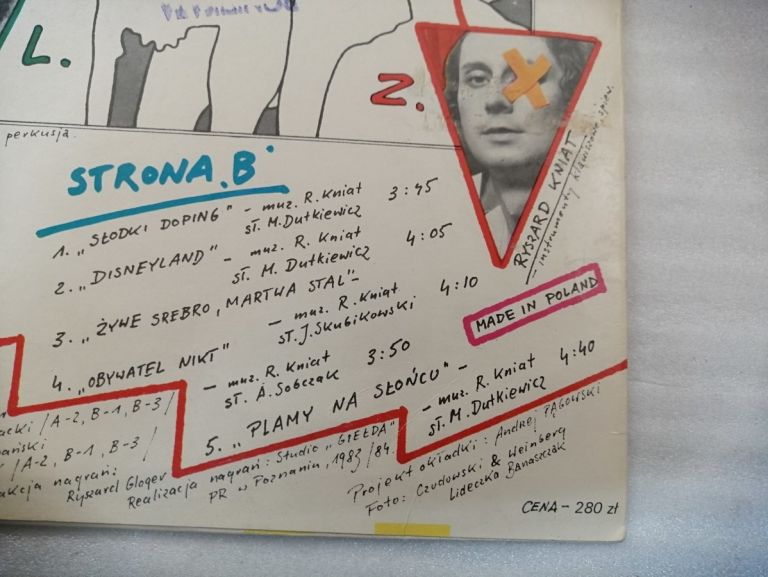 L.
2.
perkusja.
RYSZARD KNIAT
- instrumenty klawiszowe, śpiew.
STRONA B
1. „SŁODKI DOPING" - muz. R. Kniat 3:45
sł. M. Dutkiewicz
2. „DISNEYLAND" - muz. R. Kniat 4:05
sł. M. Dutkiewicz
3. „ŻYWE SREBRO, MARTWA STAL" -
- muz. R. Kniat 4:10
sł. J. Skubikowski
MADE IN POLAND
4. „OBYWATEL NIKT"
- muz. R. Kniat 3:50
sł. A. Sobczak
5. „PLAMY NA SŁOŃCU" -
- muz. R. Kniat 4:40
sł. M. Dutkiewicz
acki /A-2, B-1, B-3/
ański
/A-2, B-1, B-3/
akcja nagrań:
Ryszard Gloger
Realizacja nagrań: Studio „GIEŁDA"
PR w Poznaniu, 1983/84.
Projekt okładki: Andrzej PĄGOWSKI
Foto: Czudowski & Weinberg
Lideczka Banaszczak
CENA - 280 zł